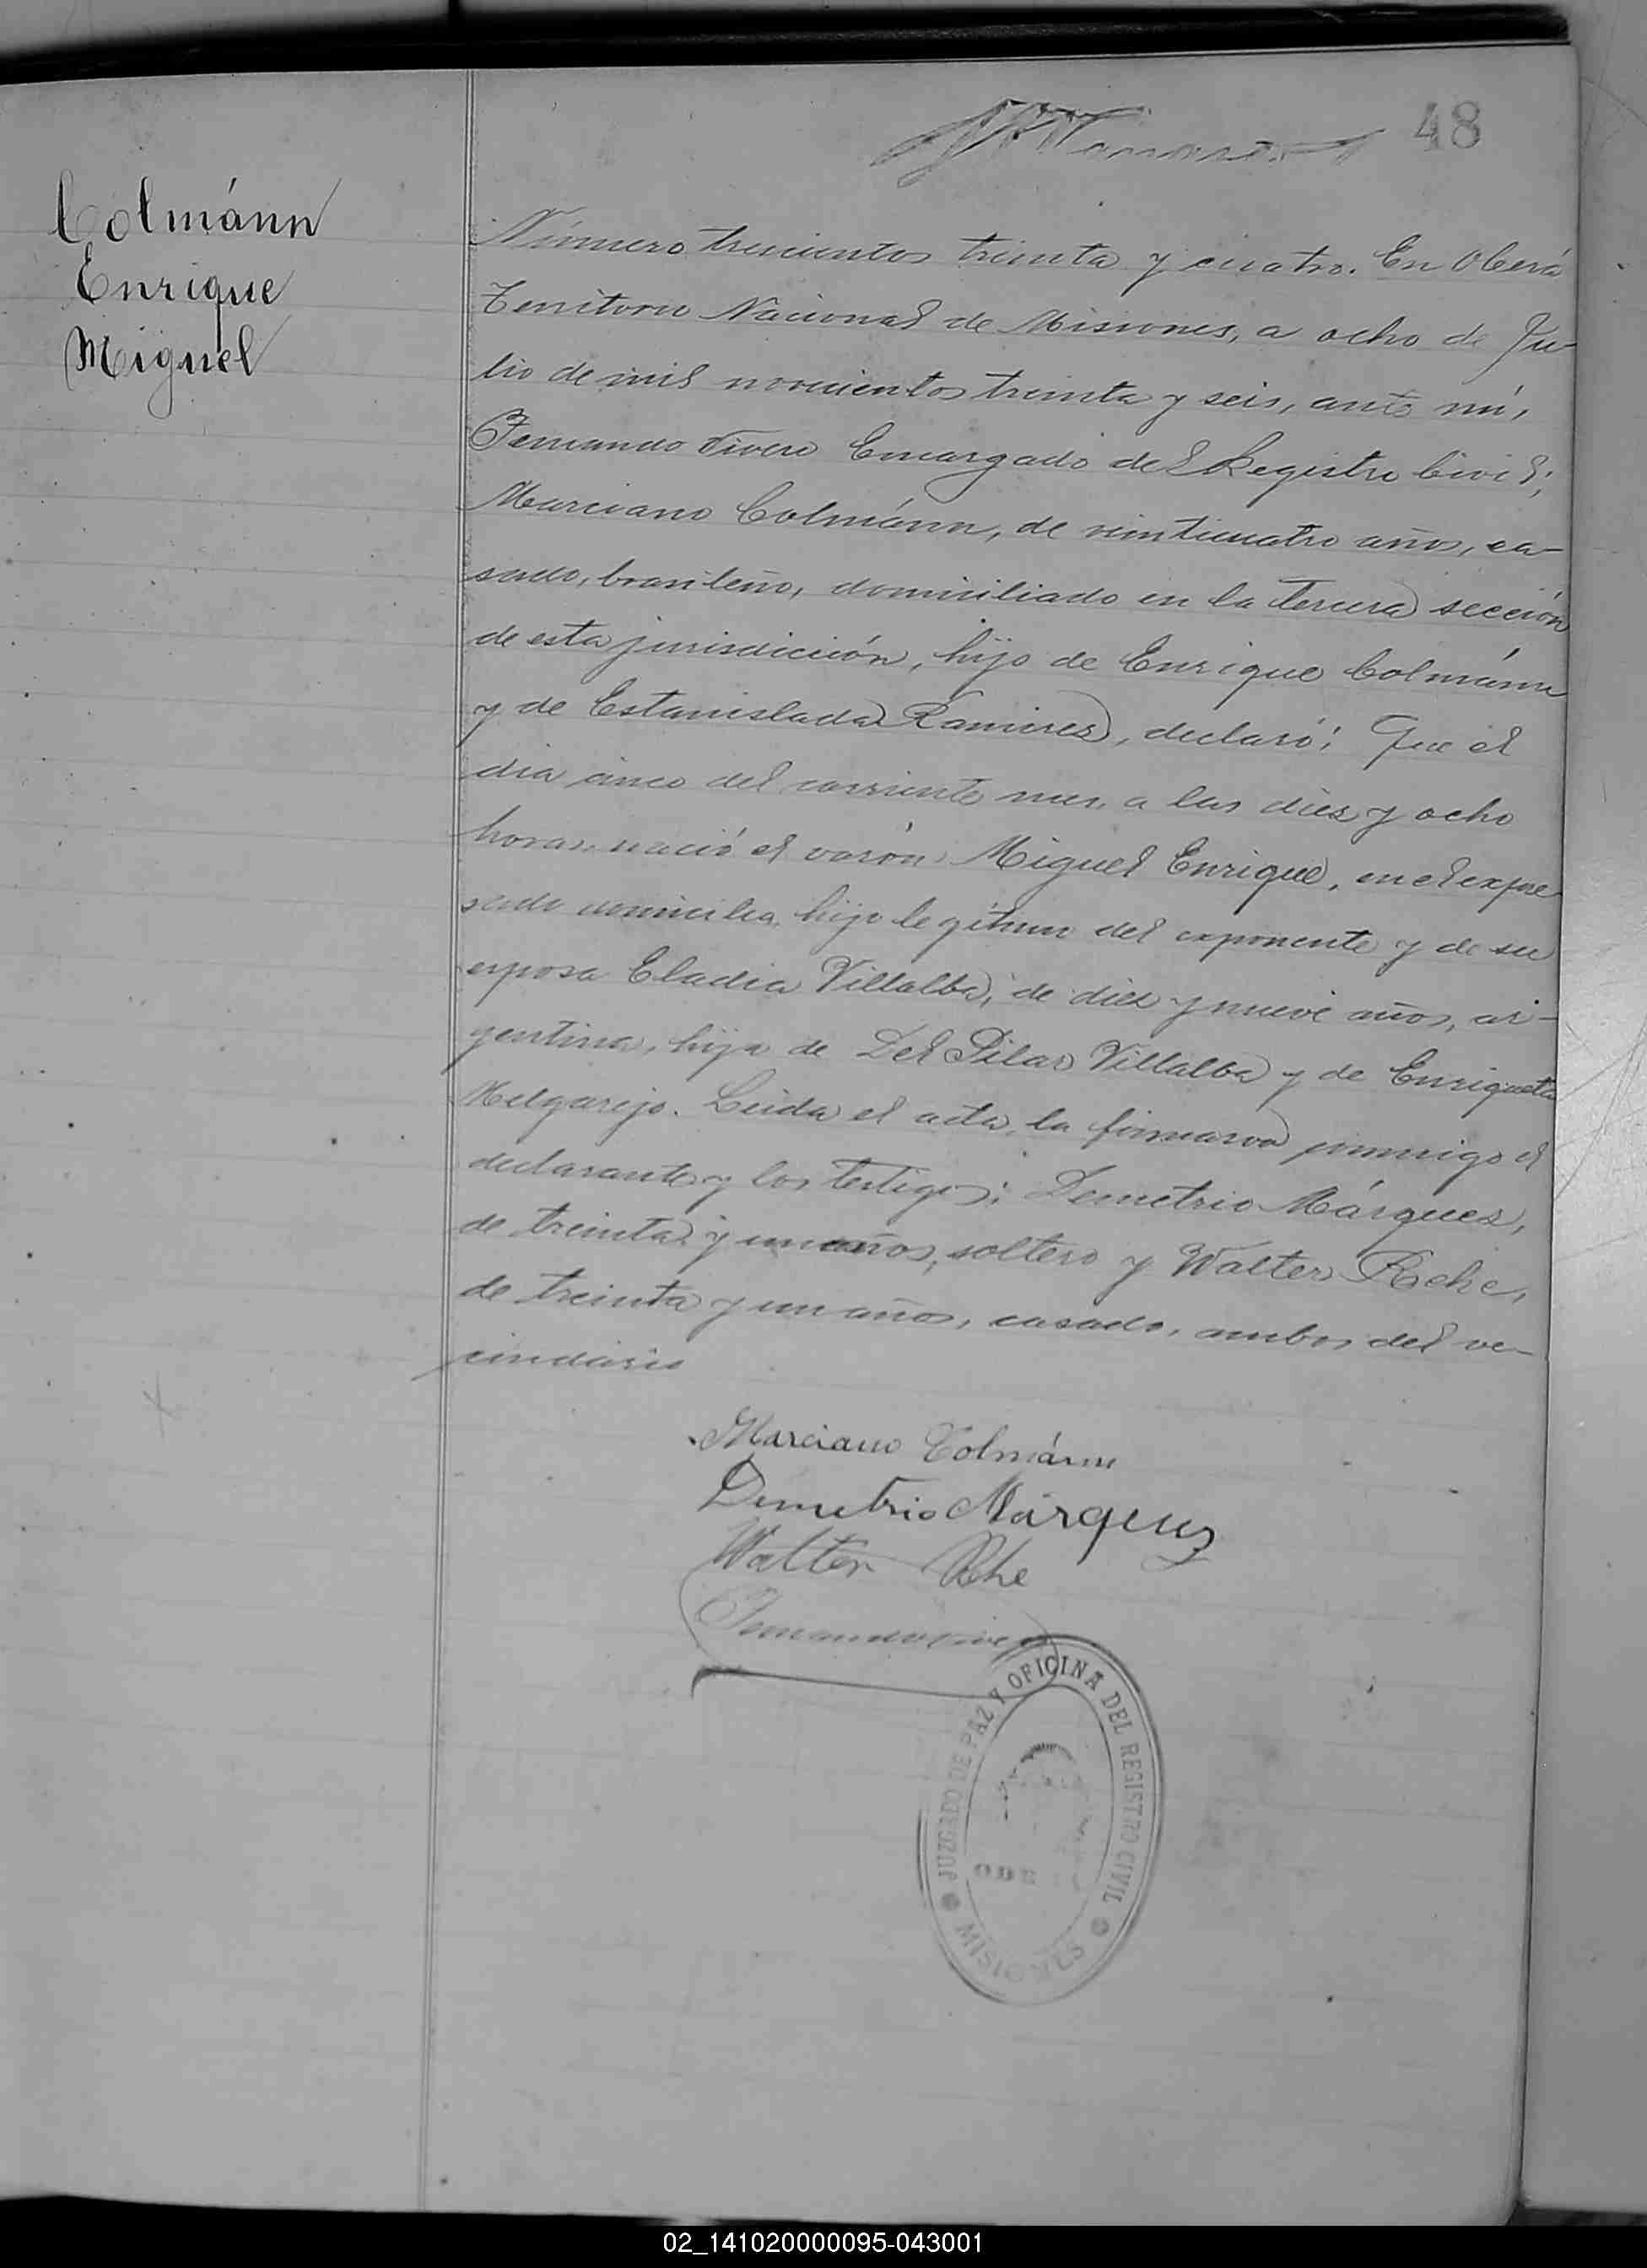 48
Colmánn
Enrique
Miguel
Número trescientos treinta y cuatro. En Oberá
Territorio Nacional de Misiones, a ocho de Ju-
lio de mil novecientos treinta y seis, ante mí,
Fernando Vivero Encargado del Registro Civil;
Marciano Colmánn, de veinticuatro años, ca-
sado, brasileño, domiciliado en la tercera sección
de esta jurisdicción, hijo de Enrique Colmánn
y de Estanislada Ramires, declaró: Que el
dia cinco del corriente mes, a las diez y ocho
horas nació el varón Miguel Enrique, en el expre
sado domicilio, hijo legítimo del exponente y de su
esposa Eladia Villalba, de diez y nueve años, ar-
gentina, hija de Del Pilar Villalba y de Enriqueta
Melgarejo. Leida el acta, la firmaron conmigo el
declarante y los testigos: Demetrio Márquez,
de treinta y un años, soltero y Walter Rehe,
de treinta y un años, casado, ambos del ve-
cindario
Marciano Colmánn
Demetrio Márquez
Walter Rehe
Fernando Vivero
JUZGADO DE PAZ Y OFICINA DEL REGISTRO CIVIL
MISIONES
02_141020000095-043001